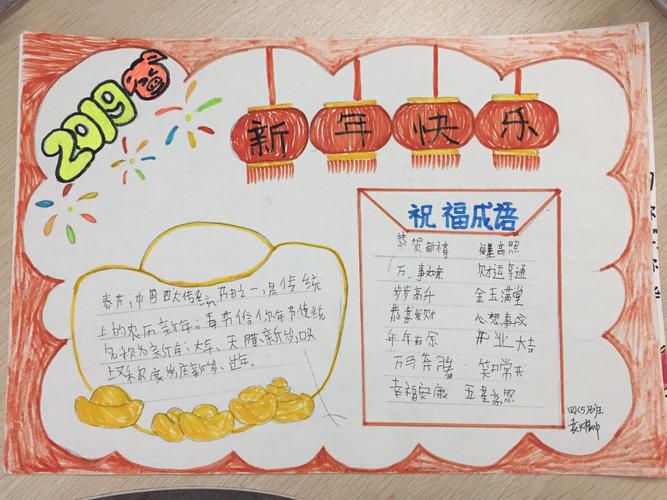 2019
新年快乐
春节,中国四大传统节日之一,是传统
上的农历新年。春节俗你年节传统
名称为新年、大年、天腊、新岁,口头
上又称度岁、庆新岁、过年。
祝福成语
恭贺新禧 福星高照
万事如意 财运亨通
步步高升 金玉满堂
恭喜发财 心想事成
年年有余 开业大吉
万马奔腾 笑口常开
幸福安康 五星高照
四(5)班